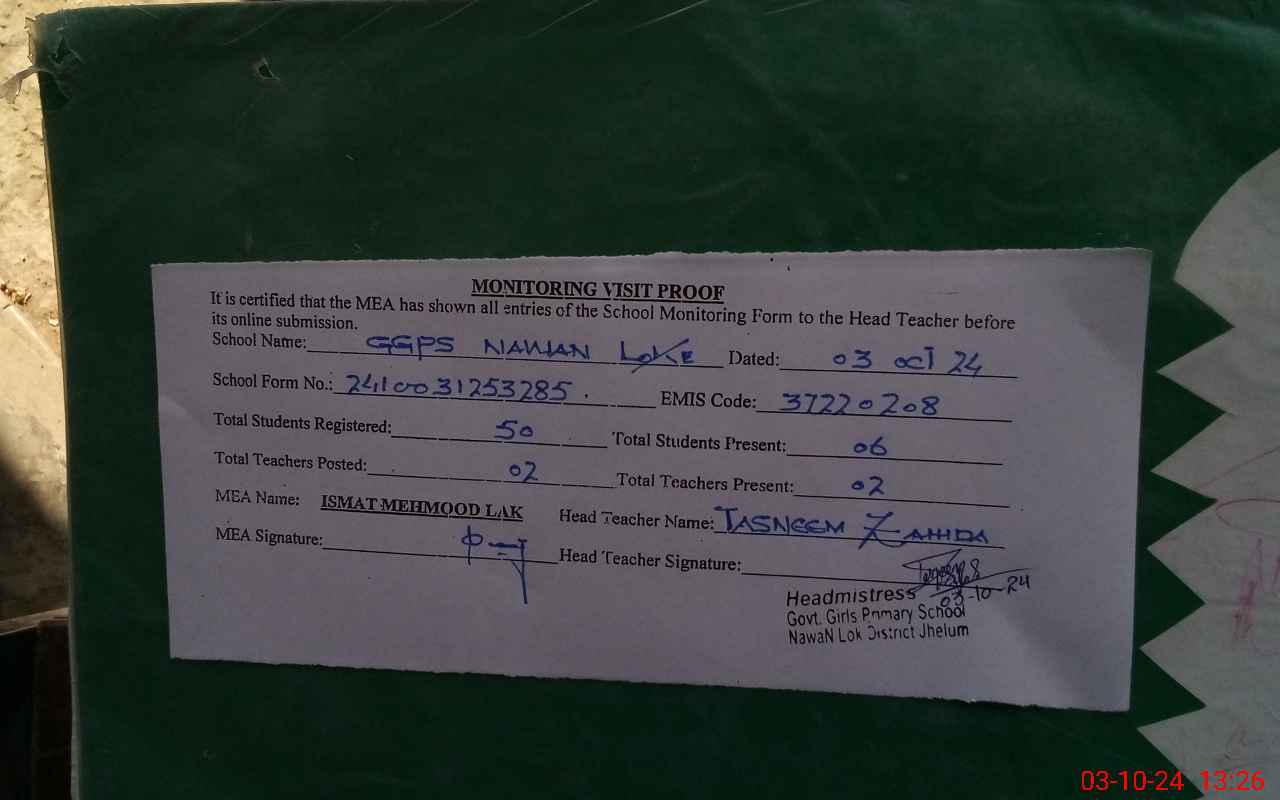 MONITORING VISIT PROOF
It is certified that the MEA has shown all entries of the School Monitoring Form to the Head Teacher before
its online submission.
School Name: GGPS NAWAN LOKE Dated: 03 OCT 24
School Form No.: 2410031253285 . EMIS Code: 37220208
Total Students Registered: 50 Total Students Present: 06
Total Teachers Posted: 02 Total Teachers Present: 02
MEA Name: ISMAT MEHMOOD LAK Head Teacher Name: TASNEEM ZAHIDA
MEA Signature: Head Teacher Signature:
03-10-24
Headmistress
Govt. Girls Primary School
NawaN Lok District Jhelum
03-10-24 13:26